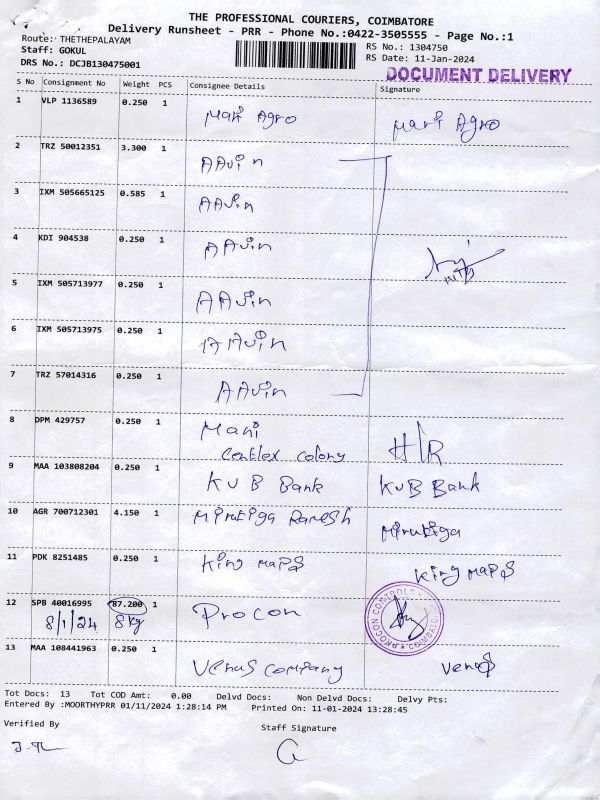 THE PROFESSIONAL COURIERS, COIMBATORE
Delivery Runsheet - PRR - Phone No.:0422-3505555 - Page No.:1
Route: THETHEPALAYAM
Staff: GOKUL
DRS No.: DCJB130475001
*130475001*
RS No.: 1304750
RS Date: 11-Jan-2024
DOCUMENT DELIVERY
S No Consignment No Weight PCS Consignee Details Signature
1 VLP 1136589 0.250 1 Mari Agro Mari Agro
2 TRZ 50012351 3.300 1 AAvin
3 IXM 505665125 0.585 1 AAvin
4 KDI 904538 0.250 1 AAvin
5 IXM 505713977 0.250 1 AAvin
6 IXM 505713975 0.250 1 AAvin
7 TRZ 57014316 0.250 1 AAvin
8 DPM 429757 0.250 1 Mani
colony H/R
9 MAA 103808204 0.250 1 KVB Bank KVB Bank
10 AGR 700712301 4.150 1 Mirutiga Ramesh Mirutiga
11 PDK 8251485 0.250 1 King Maps King Maps
12 SPB 40016995 87.200 1 Procon
8/1/24 8 kg
PROCON CONTROLS COIMBATORE
13 MAA 108441963 0.250 1 Venus Company Venus
Tot Docs: 13 Tot COD Amt: 0.00 Delvd Docs: Non Delvd Docs: Delvy Pts:
Entered By :MOORTHYPRR 01/11/2024 1:28:14 PM Printed On: 11-01-2024 13:28:45
Verified By Staff Signature
G